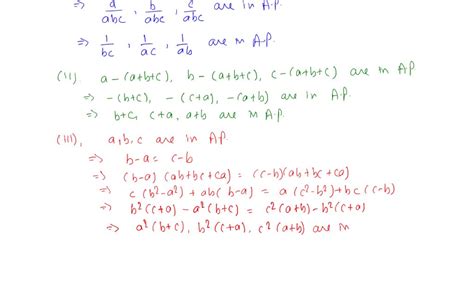 ⇒ a/abc, b/abc, c/abc are in A.P.
⇒ 1/bc, 1/ac, 1/ab are in A.P.
(ii). a-(a+b+c), b-(a+b+c), c-(a+b+c) are in AP
⇒ -(b+c), -(c+a), -(a+b) are in A.P.
⇒ b+c, c+a, a+b are in A.P.
(iii), a,b,c are in A.P.
⇒ b-a = c-b
⇒ (b-a)(ab+bc+ca) = (c-b)(ab+bc+ca)
⇒ c(b²-a²)+ab(b-a) = a(c²-b²)+bc(c-b)
⇒ b²(c+a)-a²(b+c) = c²(a+b)-b²(c+a)
⇒ a²(b+c), b²(c+a), c²(a+b) are in